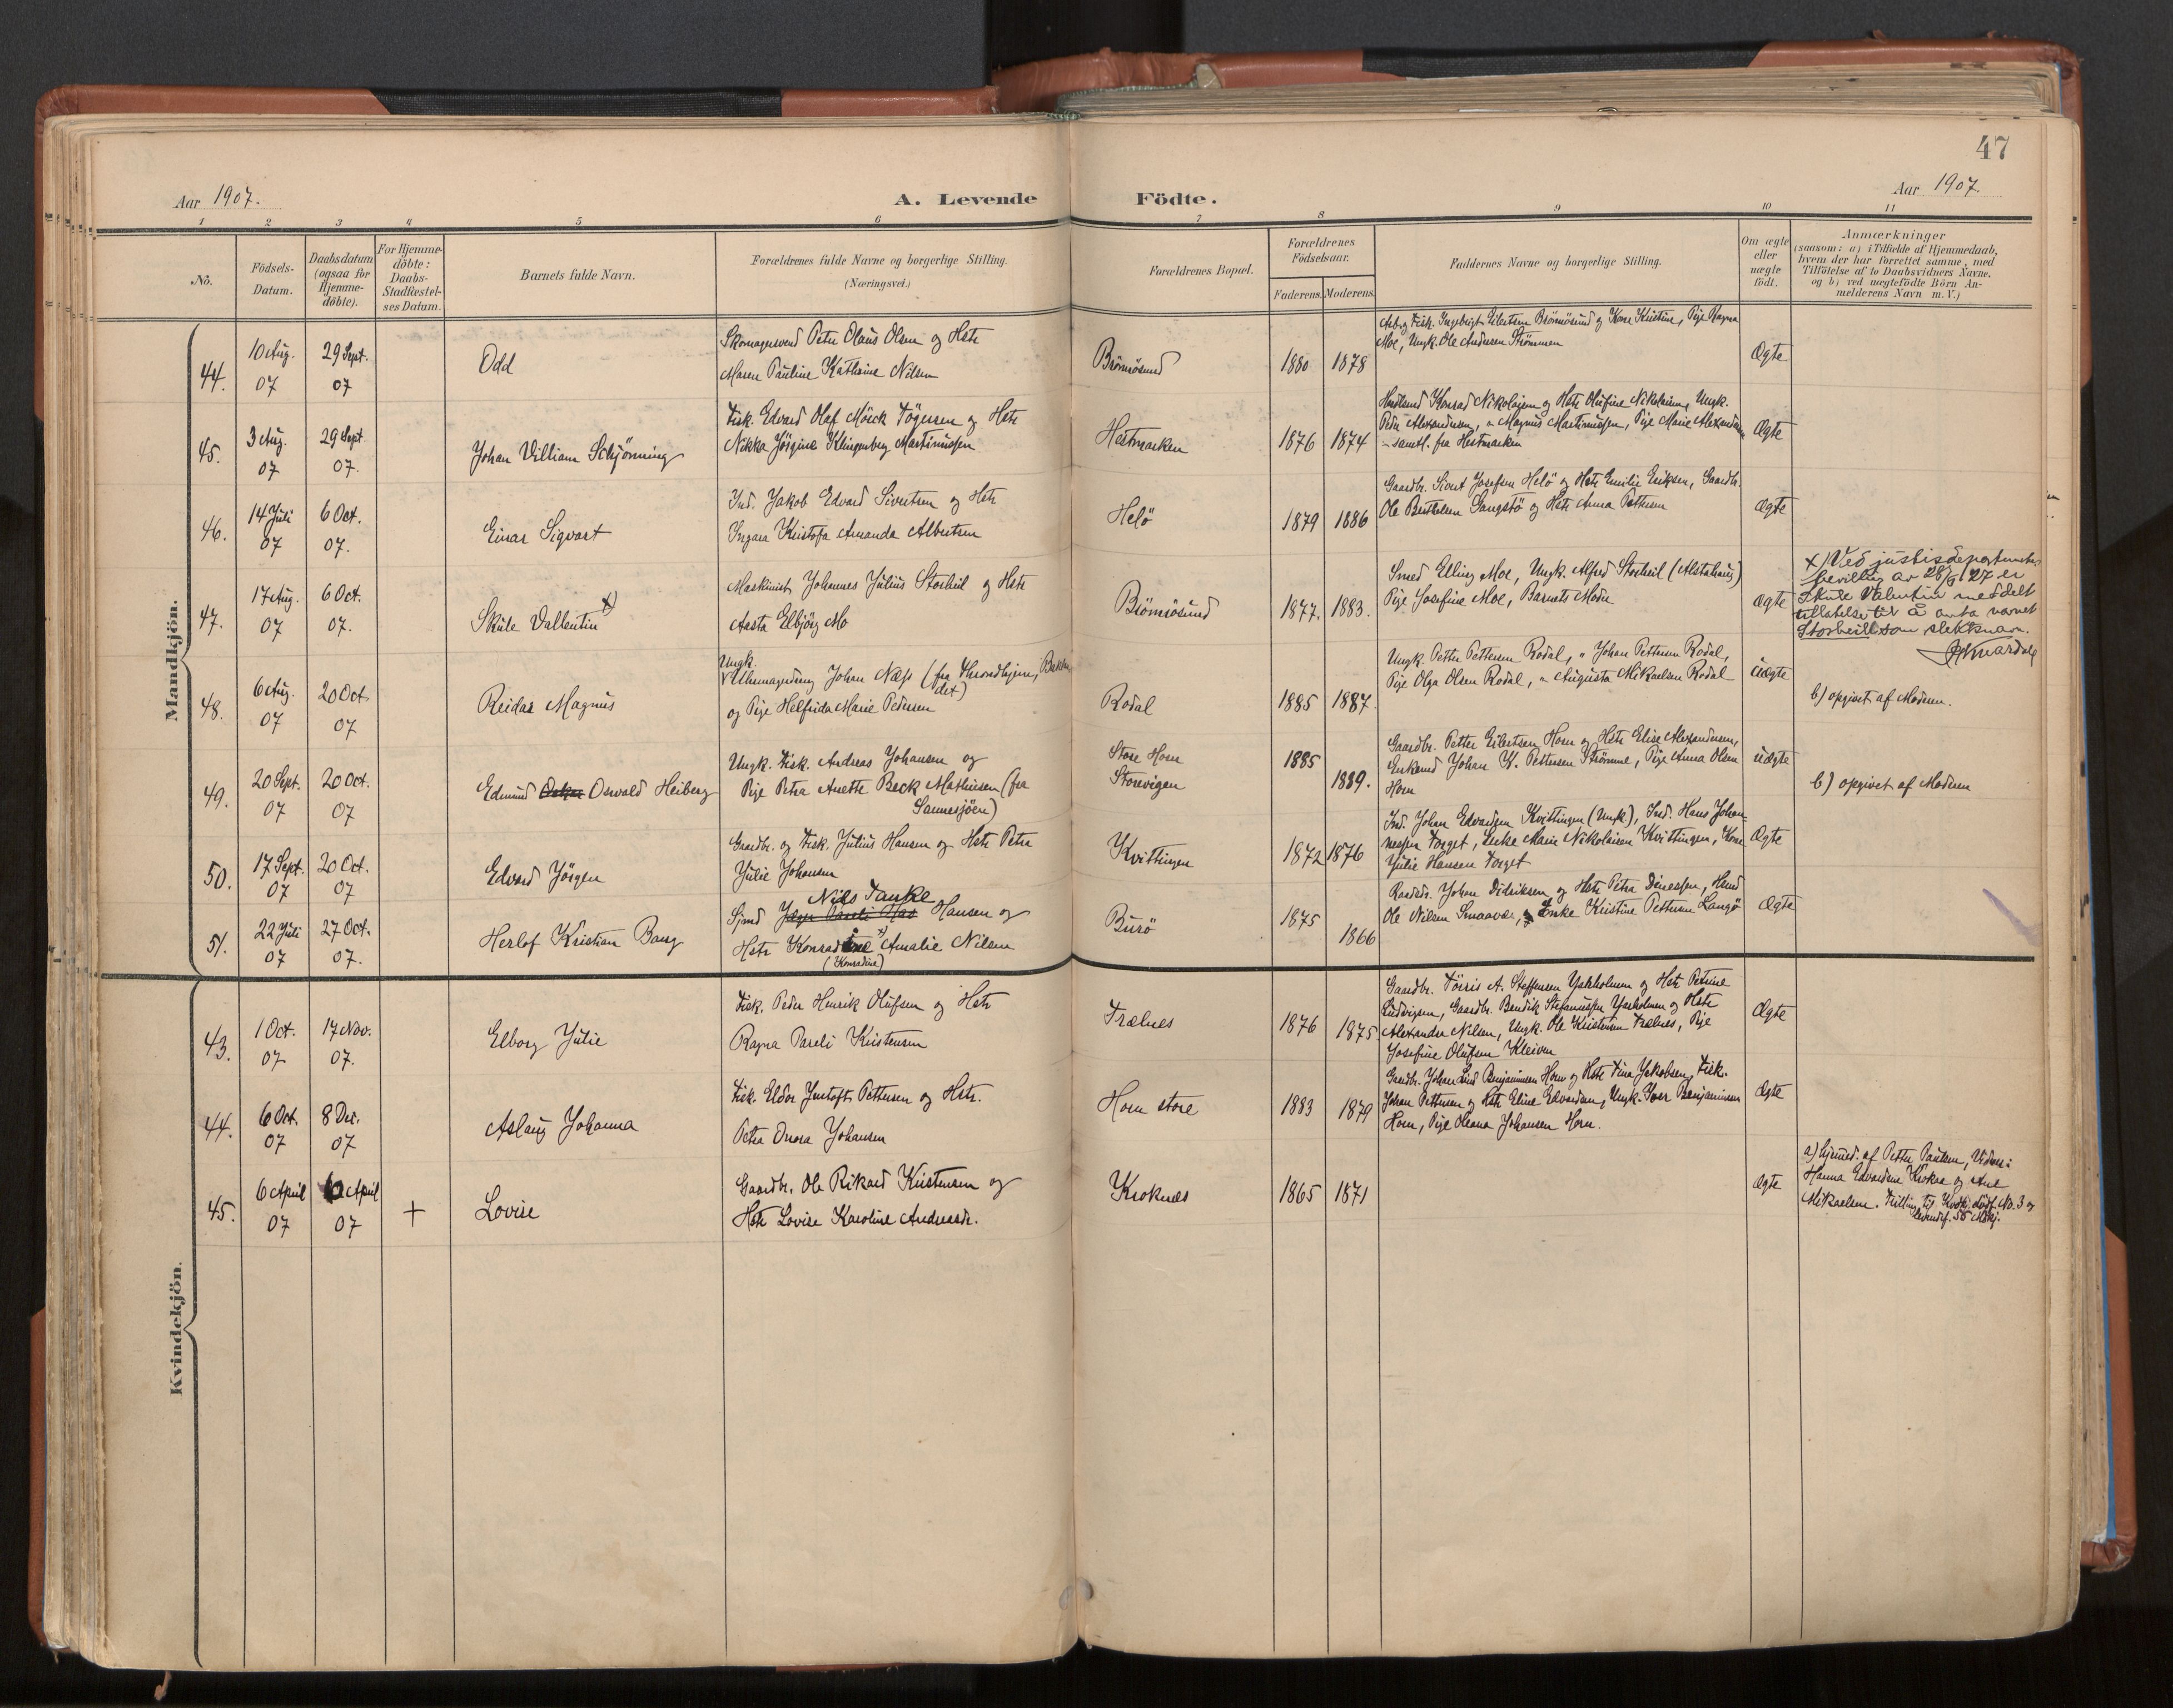 47
Aar 1907.
A. Levende
Födte.
Aar 1907
1 2 3 4 5 6 7 8 9 10 11
No.
Födsels-
Datum.
Daabsdatum
(ogsaa for
Hjemme-
döbte).
For Hjemme-
döbte:
Daabs-
Stadfæstel-
ses Datum.
Barnets fulde Navn.
Forældrenes fulde Navne og borgerlige Stilling.
(Næringsvei.)
Forældrenes Bopæl.
Forældrenes
Födselsaar.
Faderens. Moderens.
Faddernes Navne og borgerlige Stilling.
Om ægte
eller
uægte
födt.
Anmærkninger
(saasom: a) i Tilfælde af Hjemmedaab,
hvem der har forrettet samme, med
Tilföielse af to Daabsvidners Navne,
og b) ved uægtefödte Börn An-
melderens Navn m. V.)
Mandkjön.
44.
10 Aug.
07
29 Sept.
07
Odd
Skomagersvend Peter Olaus Olsen og Hstr
Maren Pauline Kathrine Nilsen
Brönnösund
1880 1878
Arb. og Fisk. Ingebrigt Eilertsen Brönnösund og Kone Kristine, Pige Ragna
Moe, Ungk. Ole Andersen Strömmen
Ægte
45.
3 Aug.
07
29 Sept.
07.
Johan Villiam Schjönning
Fisk. Edvard Olaf Mörck Tögersen og Hstr
Nikka Jörgine Klingenberg Martinussen
Hestmarken
1876 1874
Konrad Nikolaisen og Hstr Olufine Nikolaisen, Ungk.
Peder Alexandersen, " Magnus Martinussen, Pige Marie Alexandersen
- samtl. fra Hestmarken
Ægte
46.
14 Juli
07
6 Oct.
07.
Einar Sigvart
Ind. Jakob Edvard Sivertsen og Hstr
Ingara Kristofa Amanda Albertsen
Helö
1879 1886
Gaardbr. Sivert Josefsen Helö og Hstr Emilie Eriksen, Gaardbr.
Ole Bertelsen Sangstö og Hstr Anna Pettersen
Ægte
47.
17 Aug.
07
6 Oct.
07.
Skule Vallentin x)
Maskinist Johannes Julius Storheil og Hstr
Aasta Elbjörg Mo
Brönnösund
1877. 1883.
Smed Elling Moe, Ungk. Alfred Storheil (Alstahaug)
Pige Josefine Moe, Barnets Moder
Ægte
x) Ved justisdepartementets
bevilling av 28/9 1927 er
Skule Valentin meddelt
tillatelse til å anta navnet
Storheill som slektsnavn.
48.
6 Aug.
07
20 Oct.
07
Reidar Magnus
Ungk.
Uhrmagersvend Johan Næss (fra Throndhjem,
og Pige Helfrida Marie Pedersen
Rodal
1885 1887.
Ungk. Petter Pettersen Rodal, " Johan Pettersen Rodal,
Pige Olga Olsen Rodal, " Augusta Mikaelsen Rodal
Uægte
b) opgivet af Moderen.
49.
20 Sept.
07
20 Oct.
07
Edmund Oskar Osvald Heiberg
Ungk. Fisk. Andreas Johansen og
Pige Petra Anette Beck Mathisen (fra
Sannesjöen)
Store Horn
Storevigen
1885
1889.
Gaardbr. Petter Eilertsen Horn og Hstr Elise Alexandersen,
Enkemd Johan K. Pettersen Strömme, Pige Anna Olsen
Horn
uægte
b) opgivet af Moderen
50.
17 Sept.
07
20 Oct.
07
Edvard Jörgen
Gaardbr. og Fisk. Julius Hansen og Hstr Petra
Julie Johansen
Kvittingen
1872 1876
Ind. Johan Edvardsen Kvittingen (Ungk.), Ind. Hans Johan-
nessen Torget, Enke Marie Nikolaisen Kvittingen, Kone
Julie Hansen Torget
Ægte
51.
22 Juli
07
27 Oct.
07.
Herlof Kristian Bang
Nils Tanke
Sjmd Hansen og
Hstr Konradine x) Amalie Nilsen
(Konradine)
Burö
1875
1866
Johan Didriksen og Hstr Petra Dinessen,
Ole Nilsen Smaavær, Enke Kristine Pettersen Langö
Ægte
Kvindekjön.
43.
1 Oct.
07
17 Nov.
07.
Elborg Julie
Fisk. Peder Henrik Olufsen og Hstr
Ragna Pareli Kristensen
Trælnes
1876 1875.
Gaardbr. Törris A. Steffensen Ypskholmen og Hstr Petrine
Ludvigsen, Gaardbr. Bendik Stefanussen og Hstr
Alexandra Nilsen, Ungk. Ole Kristensen Trælnes, Pige
Josefine Olufsen Kleiven
Ægte
44.
6 Oct.
07
8 Dec.
07
Aslaug Johanna
Fisk. Eldor Jentoft Pettersen og Hstr.
Petra Onora Johansen
Horn store
1883 1879
Gaardbr. Johan Lind Benjaminsen Horn og Hstr Tina Jakobsen, Fisk.
Johan Pettersen og Hstr Eline Edvardsen, Ungk. Iver Benjaminsen
Horn, Pige Oleana Johansen Horn.
Ægte
45.
6 April
07
6 April
07
+
Lovise
Gaardbr. Ole Rikard Kristensen og
Hstr Lovise Karoline Andreasdr.
Kroknes
1865 1871
Ægte
a) hjemmed. af Petter Paulsen, Vidner:
Hanna Edvardine Krokaa og Ane
Mikaelsen. Trilling til Kvdkj. dödf. No. 3 og
levendef. 55 Mdkj.